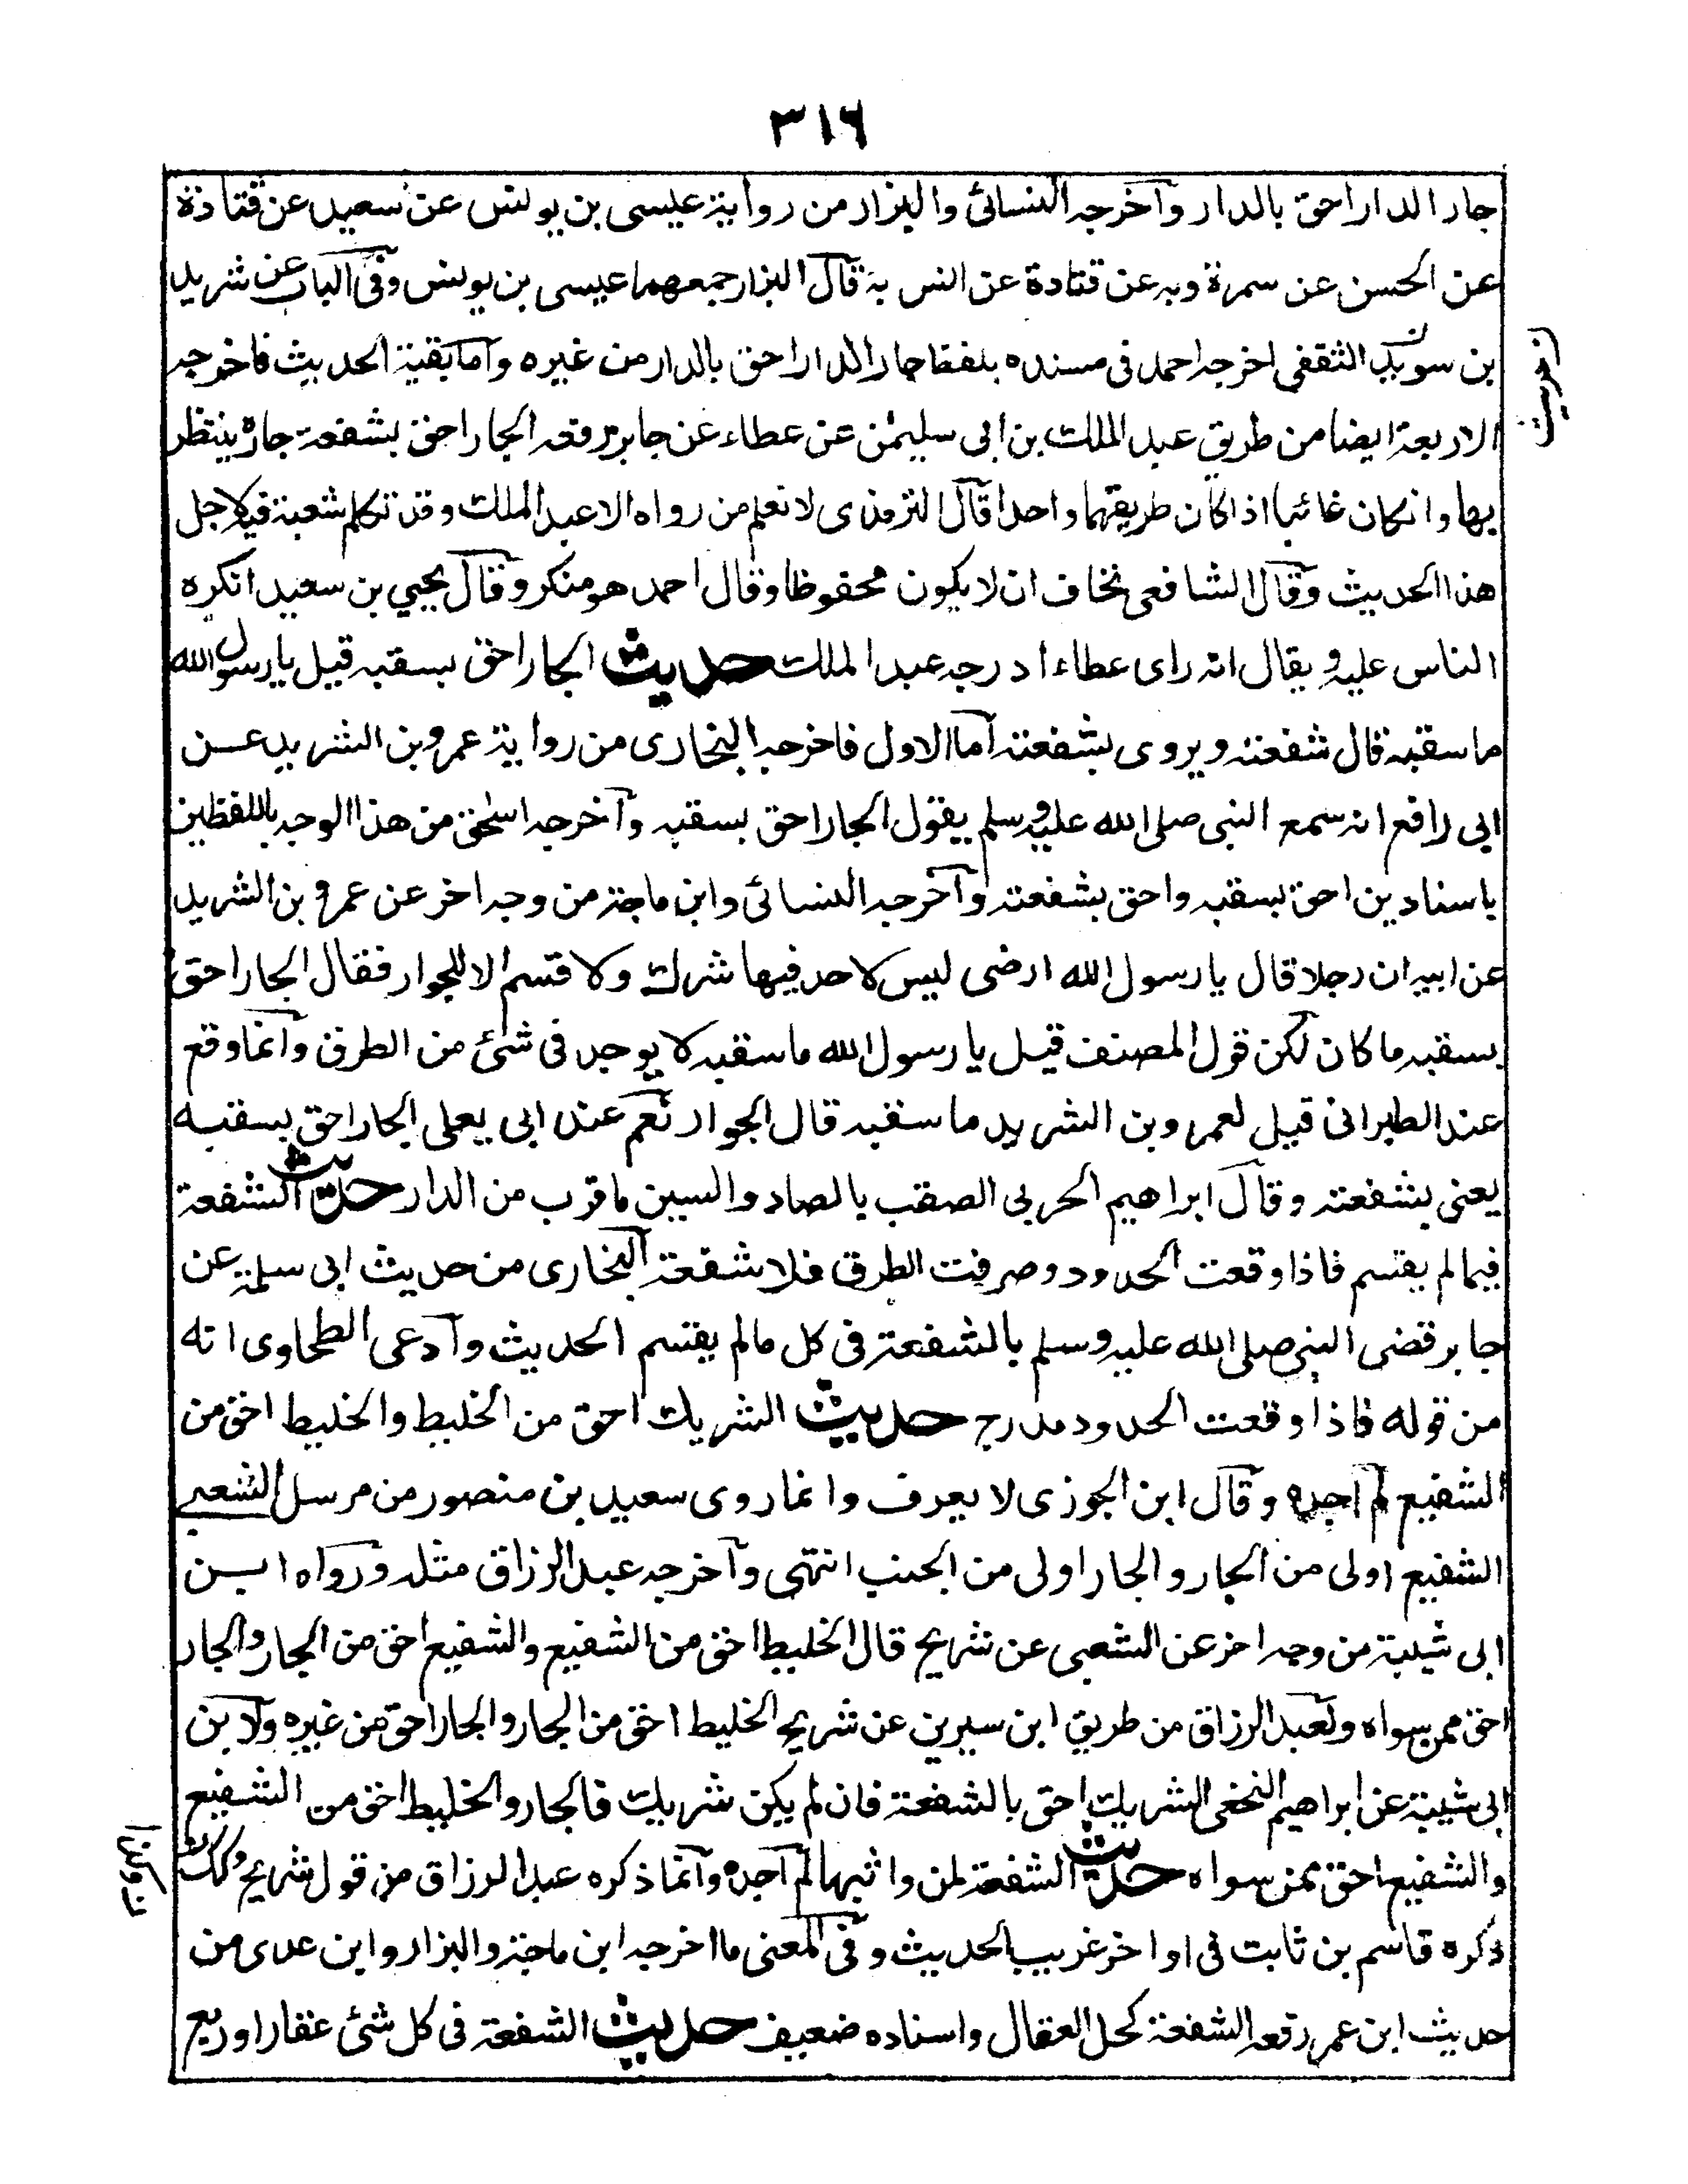 ٣١٦
جار الدار احق بالدار وآخرجه النسائى والبزار من رواية عيسى بن يونس عن سعيد عن قتادة
عن الحسن عن سمرة وبه عن قتادة عن انس به قال البزار جمعهما عيسى بن يونس وفى الباب عن شريد
بن سويد الثقفى اخرجه احمد فى مسنده بلفظ جار الدار احق بالدار من غيره واما بقية الحديث فاخرجه
الاربعة ايضا من طريق عبد الملك بن ابى سليمٰن عن عطاء عن جابر رفعه الجار احق بشفعة جاره ينتظر
بها وانكان غائبا اذا كان طريقهما واحدا قال الترمذى لا نعلم من رواه الا عبد الملك وقد تكلم شعبة فيه لاجل
هذا الحديث وقال الشافعى نخاف ان لا يكون محفوظا وقال احمد هو منكر وقال يحيي بن سعيد انكره
الناس عليه ويقال انه راى عطاء ادرجه عبد الملك حديث الجار احق بسقبه قيل يا رسول الله
ما سقبه قال شفعته ويروى بشفعته آما الاول فاخرجه البخارى من رواية عمرو بن الشريد عن
ابى رافع انه سمع النبى صلى الله عليه وسلم يقول الجار احق بسقبه وآخرجه اسحٰق من هذا الوجه باللفظين
باسنادين احق بسقبه واحق بشفعته وآخرجه النسائى وابن ماجة من وجه اخر عن عمرو بن الشريد
عن ابيه ان رجلا قال يا رسول الله ارضى ليس لاحد فيها شرك ولا قسم الا للجوار فقال الجار احق
بسقبه ما كان لكن قول المصنف قيل يا رسول الله ما سقبه لا يوجد فى شئ من الطرق وآنما وقع
عند الطبرانى قيل لعمرو بن الشريد ما سقبه قال الجوار نعم عند ابى يعلى الجار احق بسقبه
يعنى بشفعته وقال ابراهيم الحربى الصقب بالصاد والسين ما قرب من الدار حديث الشفعة
فيما لم يقسم فاذا وقعت الحدود وصرفت الطرق فلا شفعة البخارى من حديث ابى سلمة عن
جابر قضى النبى صلى الله عليه وسلم بالشفعة فى كل مالم يقسم الحديث وآدعى الطحاوى انه
من قوله فاذا وقعت الحدود مدرج حديث الشريك احق من الخليط والخليط احق من
الشفيع لم آجده وقال ابن الجوزى لا يعرف وانما روى سعيد بن منصور من مرسل الشعبي
الشفيع اولى من الجار والجار اولى من الجنب انتهى وآخرجه عبد الرزاق مثله ورواه ابن
ابى شيبة من وجه اخر عن الشعبى عن شريح قال الخليط احق من الشفيع والشفيع احق من الجار والجار
احق ممن سواه ولعبد الرزاق من طريق ابن سيرين عن شريح الخليط احق من الجار والجار احق من غيره ولابن
ابى شيبة عن ابراهيم النخعى الشريك احق بالشفعة فان لم يكن شريك فالجار والخليط احق من الشفيع
والشفيع احق بمن سواه حديث الشفعة لمن واثبها لم آجده وآنما ذكره عبد الرزاق من قول شريح وكذا
ذكره قاسم بن ثابت فى اواخر غريب الحديث وفى المعنى ما اخرجه ابن ماجة والبزار وابن عدى من
حديث ابن عمر رفعه الشفعة كحل العقال واسناده ضعيف حديث الشفعة فى كل شئ عقار او ربع